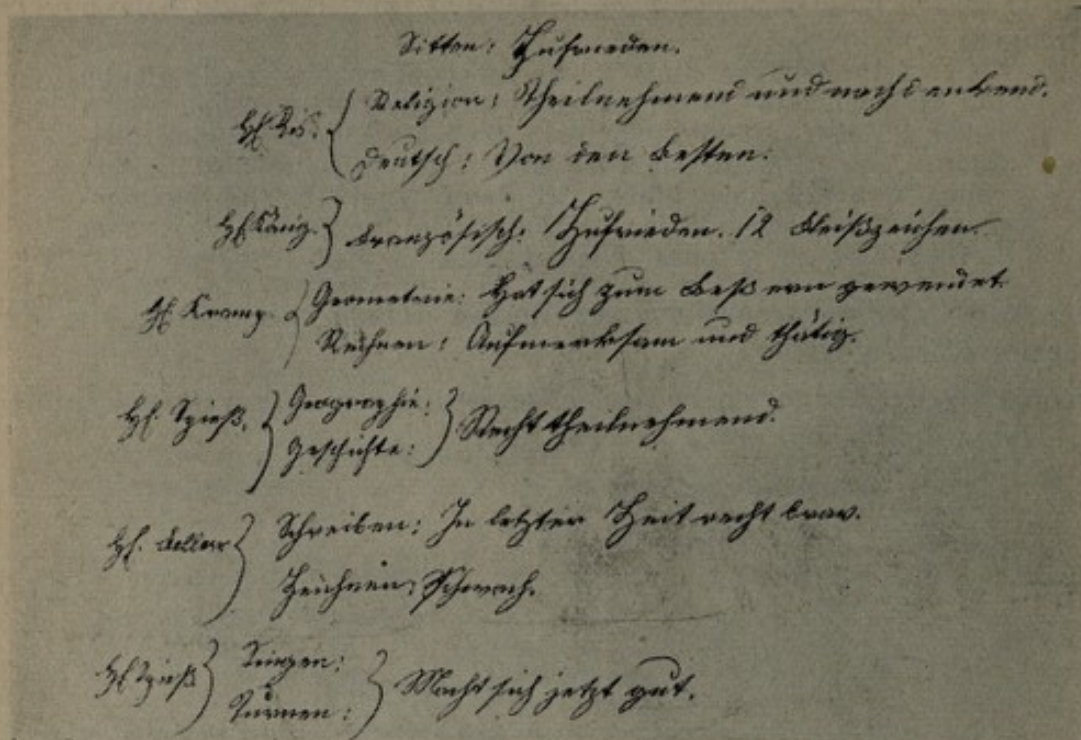 Sitten: Zufrieden.
Hf. Ris. { Religion: Theilnehmend und nachdenkend.
Deutsch: Von den Besten.
Hf. König. } Französisch: Zufrieden. 12 Fleißzeichen.
Hf. Kranz. { Geometrie: Hat sich zum Beßern gewendet.
Rechnen: Aufmerksam und thätig.
Hf. Spieß. } Geographie: } Recht theilnehmend.
Geschichte:
Hf. Keller } Schreiben: In letzter Zeit recht brav.
Zeichnen: Schwach.
Hf. Spieß } Singen: } Macht sich jetzt gut.
Turnen: